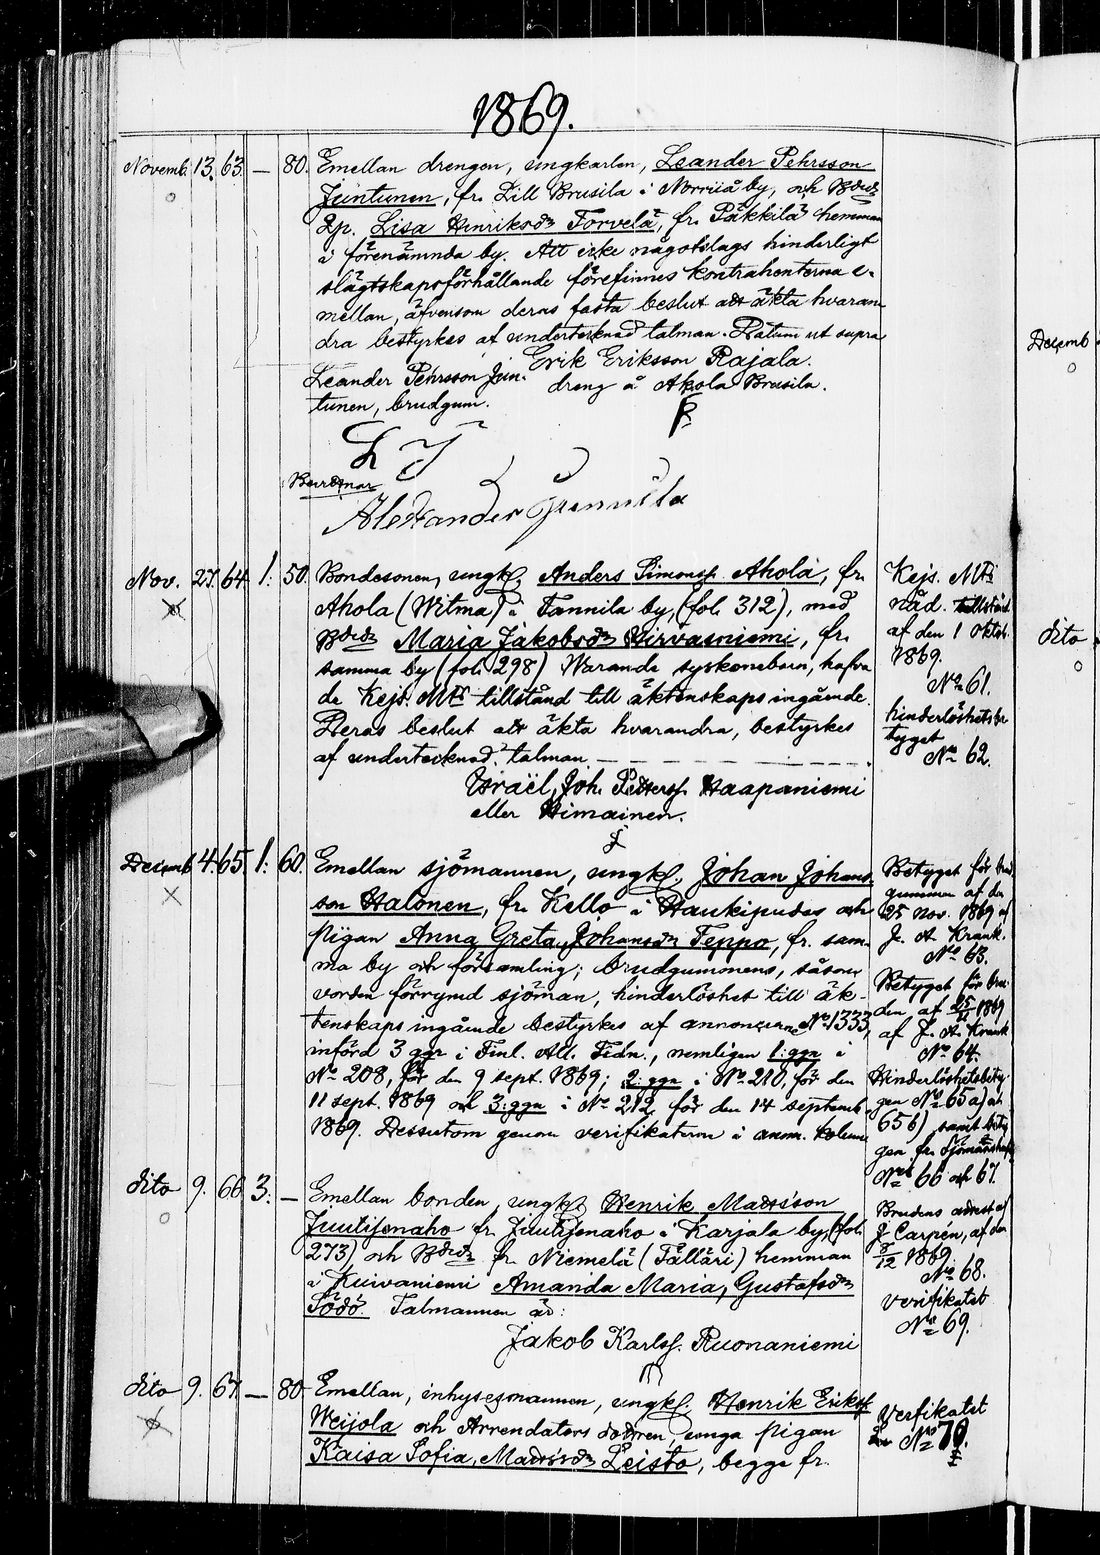 1869.
Novemb. 13. 63. — 80. Emellan drengen, ungkarlen, Leander Pehrsson
Juntunen, fr. Lill Brusila i Norriiå by, och Bdtr
Zp. Lisa Henriksdr Torvela, fr. Päkkilä hemman
i förenämnda by. Att icke någotslags hinderligt
slägtskapsförhållande förefinnes kontrahenterna e-
mellan, äfvensom deras fasta beslut att äkta hvaran-
dra bestyrkes af undertecknad talman. Datum ut supra
Erik Eriksson Rajala.
dreng å Akola Brusila.
Leander Pehrsson Jun-
tunen, brudgum.
L J
Alexander
Nov. 27. 64. 1: 50. Bondesonen, ungk. Anders Simonss. Ahola, fr.
Ahola (Witma) i Tannila by, (fol. 312), med
Bdtr Maria Jakobsdr Hirvasniemi, fr.
samma by (fol. 298) Warande syskonebarn, hafva
de Kejs. Mts tillstånd till äktenskaps ingående.
Deras beslut att äkta hvarandra, bestyrkes
af undertecknad talman.
Israël Joh. Petterss. Haapaniemi
eller Himainen.
Kejs. Mts
nåd. tillstånd
af den 1 Oktob.
1869.
No 61.
hinderlöshetsbe-
tyget
No 62.
Decemb. 4. 65. 1: 60. Emellan sjömannen, ungk. Johan Johans-
son Halonen, fr. Kello i Haukipudas och
pigan Anna Greta Johansdr Teppo, fr. sam-
ma by och församling; brudgummens, såsom
vorden förrymd sjöman, hinderlöshet till äk-
tenskaps ingående bestyrkes af annoncerne No 1333,
införd 3 ggr i Finl. All. Tidn., nemligen 1:ggn i
No 208, för den 9 sept. 1869; 2:ggn i No 210, för den
11 sept. 1869 och 3:ggn i No 212, för den 14 septemb.
1869. Dessutom genom verifikaterna i anm. kolumn
Betyget för brud-
gummen af den
25 Nov. 1869 af
J. A. Krank.
No 63.
Betyget för bru-
den af 25/11 1869
af J. A. Krank
No 64.
Hinderlöshetsbety-
gen No 65 a) och
65 b) samt bety-
gen fr. Sjömanshuset
No 66 och 67.
dito 9. 66. 3. — Emellan bonden, ungk. Henrik Matsson
Juutijenaho fr. Juutijenaho i Karjala by, (fol.
273) och Bdtr fr. Niemelä (Fälläri) hemman
i Kuivaniemi Amanda Maria, Gustafsdr
Södö. Talmannen är:
Jakob Karlss. Ruonaniemi
Brudens adrest af
J Carpén, af den
8/12 1869.
No 68.
Verifikatet
No 69.
dito 9. 67. — 80. Emellan, inhysesmannen, ungk. Henrik Erikss.
Weijola och Arrendators dottren, unga pigan
Kaisa Sofia, Matsdr Leisto, begge fr.
Verfikatet
No 70.
Decemb
dito